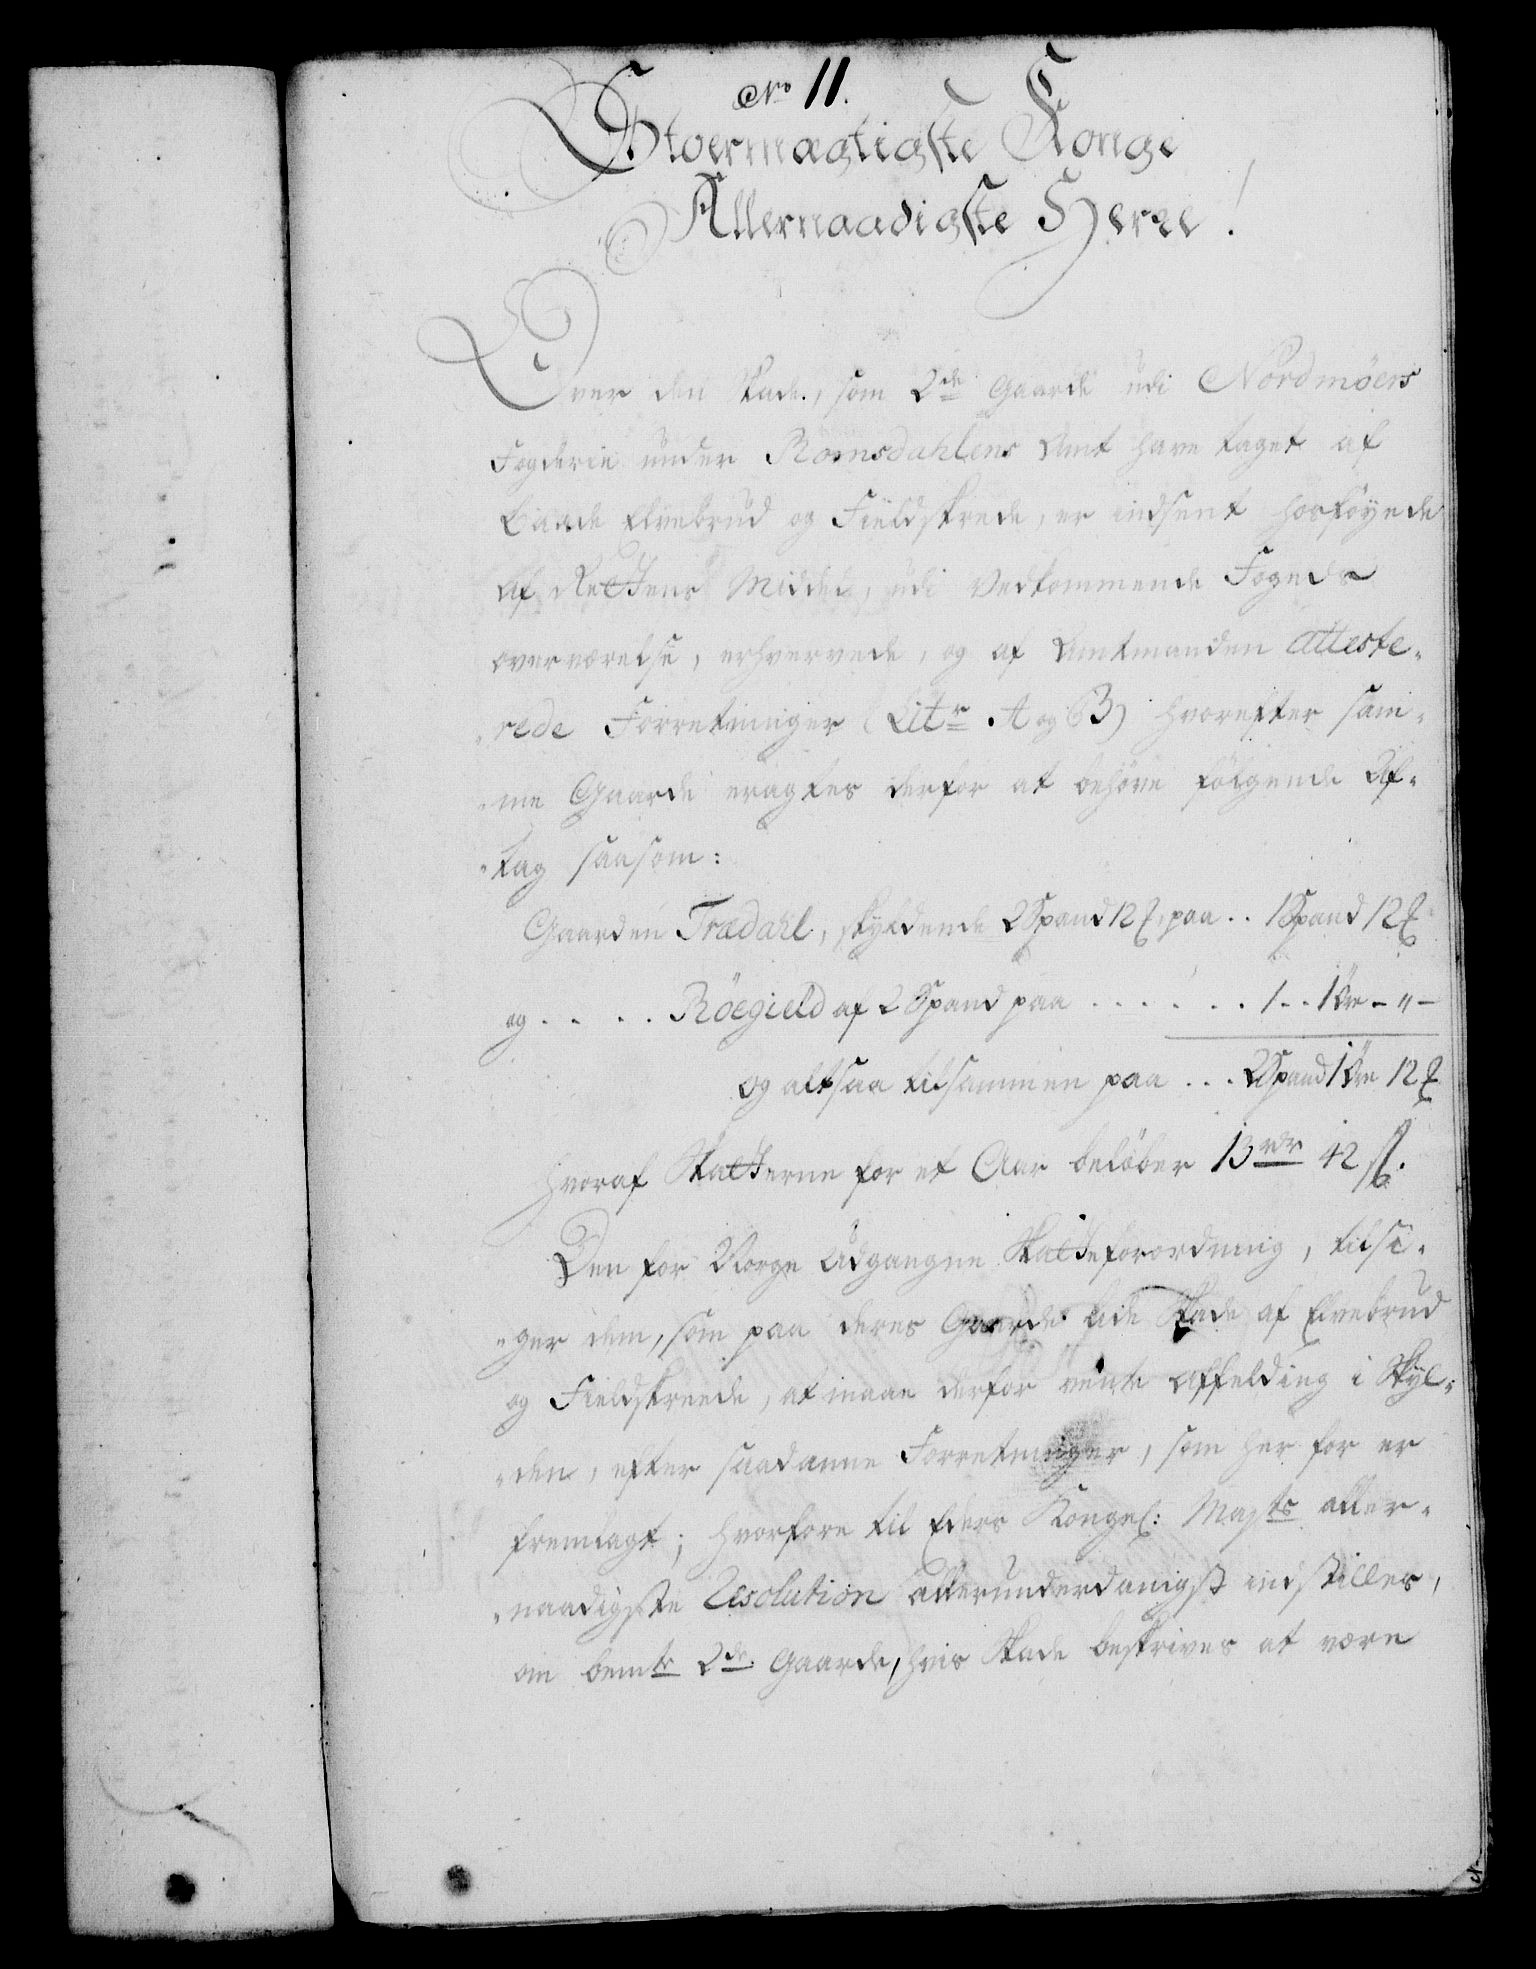 No 11.
Stoermægtigste Konge
Allernaadigste Herre!
Over den Skade, som 2de Gaarde udi Nordmöers
Fogderie under Romsdahlens Amt have taget af
baade Elvebrud og Fieldskrede, er indsent hosföyede
af Rettens Middel, udi Vedkommende Fogeds
overværelse, erhvervede, og af Amtmanden atteste-
-rede Forretninger (Litr A og B) hvorefter sam-
-me Gaarde eragtes derfor at behöve fölgende Af-
-tag saasom:
Gaarden Trædahl, skyldende 2 Spand 12 ℔, paa .. 1 Spand 12 ℔
og .... Röegield af 2 Spand paa ....... 1 .. 1 Öre - " -
og altsaa tilsammen paa ... 2 Spand 1 Öre 12 ℔
hvoraf Skatterne for et Aar belöber 13 rdr 42 ß.
Den for Norge Udgangne Skatteforordning, tilsi-
-ger dem, som paa deres Gaarde lide Skade af Elvebrud
og Fieldskreede, at maae derfor vente Affelding i Skyl-
-den, efter saadanne Forretninger, som her for er
fremlagt; hvorfore til Eders Kongel: Majts aller-
-naadigste Resolution allerunderdanigst indstilles,
om bemte 2de Gaarde, hvis Skade beskrives at være